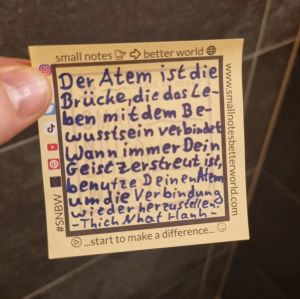 small notes ➡ better world
Der Atem ist die
Brücke, die das Le-
ben mit dem Be-
wusstsein verbindet
Wann immer Dein
Geist zerstreut ist,
benutze Deinen Atem
um die Verbindung
wieder herzustellen.
- Thich Nhat Hanh -
...start to make a difference...
#SNBW
www.smallnotesbetterworld.com